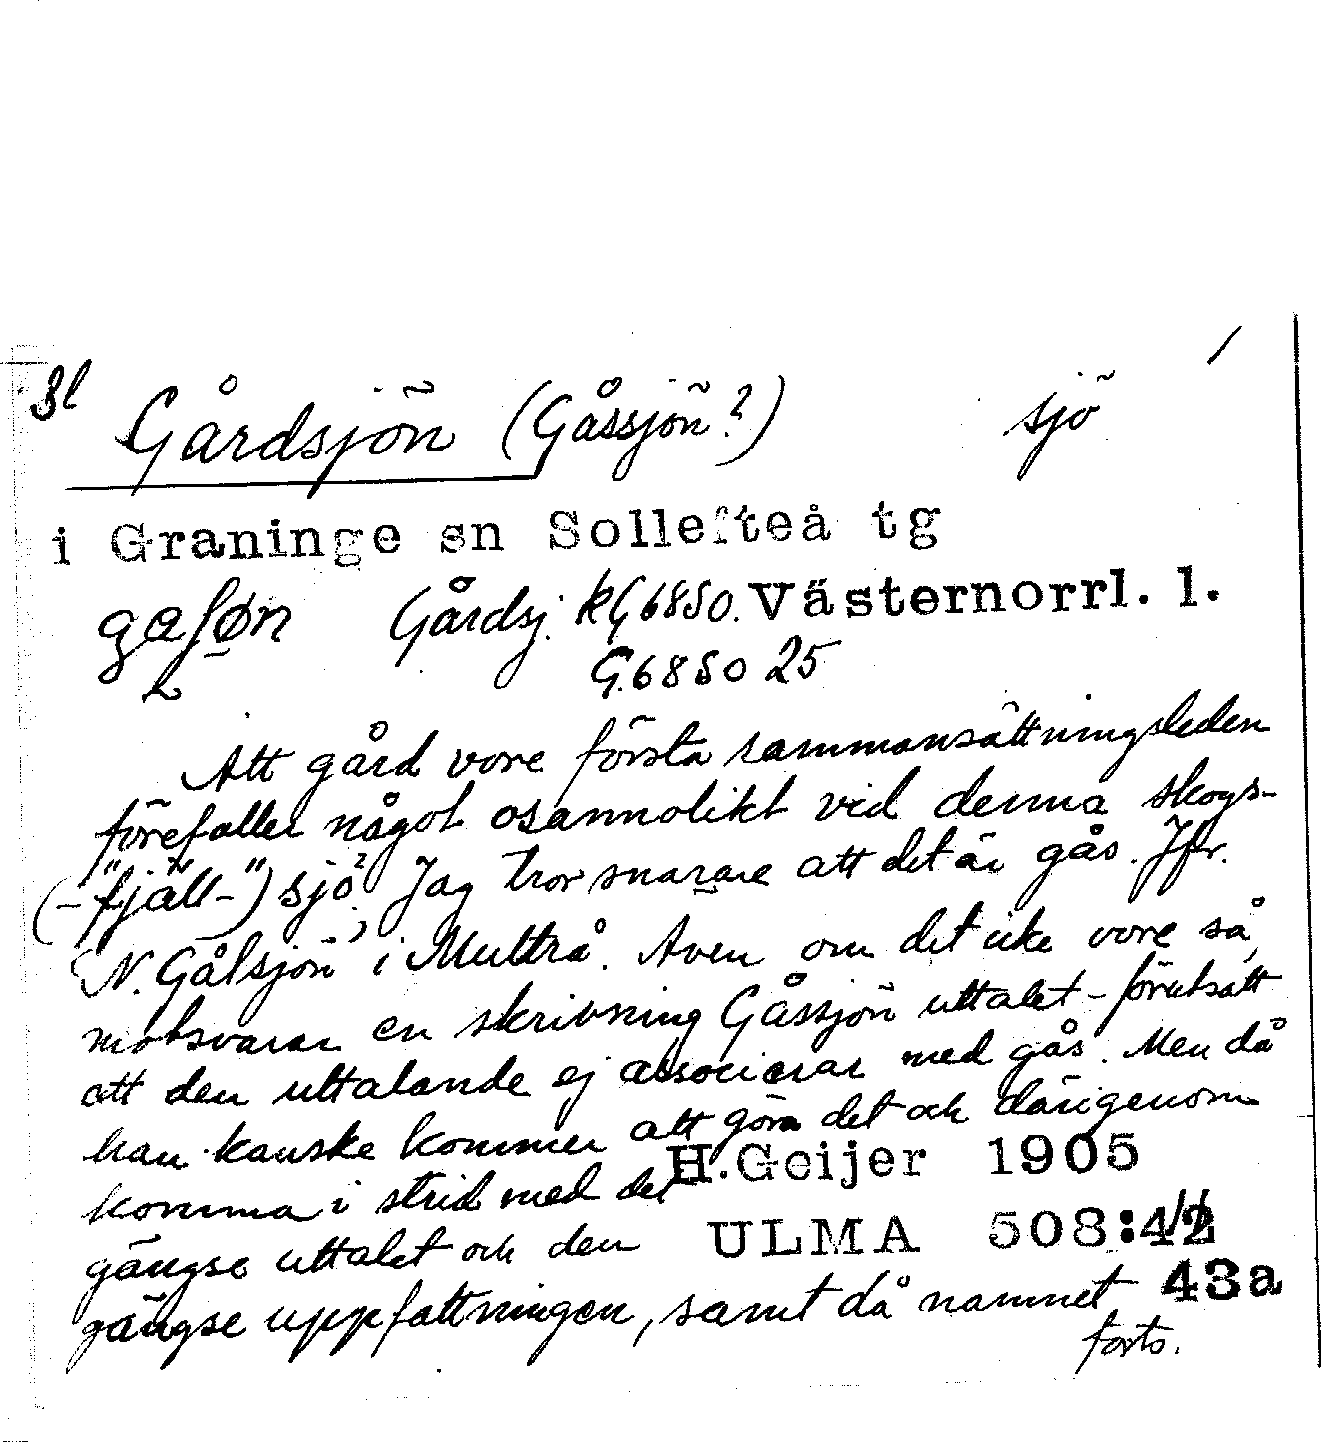 Gårdsjön (Gåssjön?) sjö
i Graninge sn Sollefteå tg
Gårdsj. kG6850. Västernorrl. l.
G.6850 25
Att gård vore första sammansättningsleden
förefaller något osannolikt vid denna skogs-
(-"fjäll-") sjö? Jag tror snarare att det är gås. Jfr.
N. Gålsjön i Multrå. Även om det icke vore så,
motsvarar en skrivning Gåssjön uttalet - förutsatt
att den uttalande ej associerar med gås. Men då
han kanske kommer att göra det och därigenom
H. Geijer 1905
komma i strid med det
gängse uttalet och den ULMA 508:42
gängse uppfattningen, samt då namnet 43a
forts.